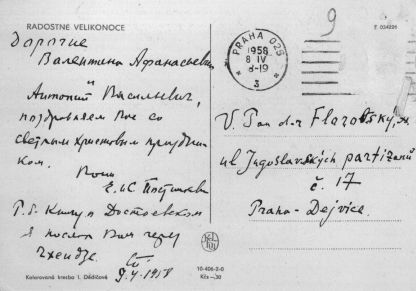 RADOSTNE VELIKONOCE
F 034226
9
PRAHA 025
1958
8 IV
8-19
3
Дорогие
Валентина Афанасьевна
и
Антоний Васильевич,
поздравляем Вас со
светлым Христовым праздни-
ком.
Ваши
Е. и С.
P.S. Книгу о Достоевском
я послал Вам через
9.4.1958
V. Pan d-r Florovský, A.
ul Jugoslavských partizanů
č. 17
Praha-Dejvice.
Kolorovaná kresba I. Dědičová
10-406-2-0
Kčs -,30